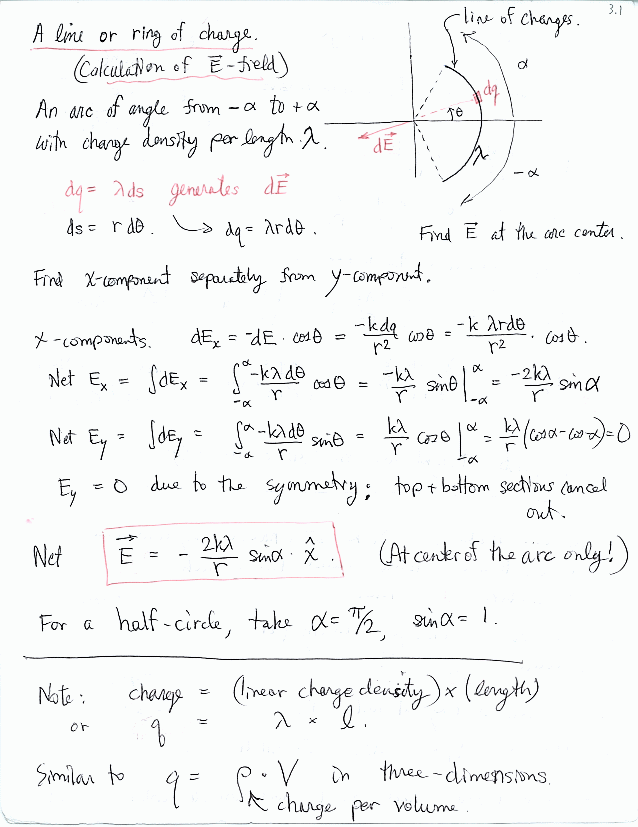 3.1
A line or ring of charge.
(Calculation of E⃗-field)
line of charges.
α
dq
θ
dE⃗
λ
-α
An arc of angle from -α to +α
with charge density per length λ.
dq = λds generates dE⃗
ds = r dθ. ↳ dq = λrdθ.
Find E⃗ at the arc center.
Find x-component separately from y-component.
x-components. dEₓ = -dE · cosθ = -kdq/r² cosθ = -k λrdθ/r² · cosθ.
Net Eₓ = ∫dEₓ = ∫_{-α}^{α} -kλdθ/r cosθ = -kλ/r sinθ |_{-α}^{α} = -2kλ/r sinα
Net E_y = ∫dE_y = ∫_{-α}^{α} -kλdθ/r sinθ = kλ/r cosθ |_{-α}^{α} = kλ/r (cosα-cos-α)=0
E_y = 0 due to the symmetry; top + bottom sections cancel
out.
Net E⃗ = - 2kλ/r sinα · x̂. (At center of the arc only!)
For a half-circle, take α = π/2, sinα = 1.
Note: charge = (linear charge density) × (length)
or q = λ × l.
Similar to q = ρ · V in three-dimensions.
↖ charge per volume.